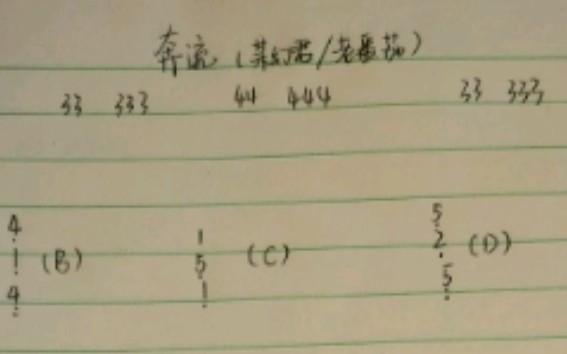 奔流 (某幻君/老番茄)
33 333 44 444 33 333
4 1 5
1 (B) 5 (C) 2 (D)
4 1 5